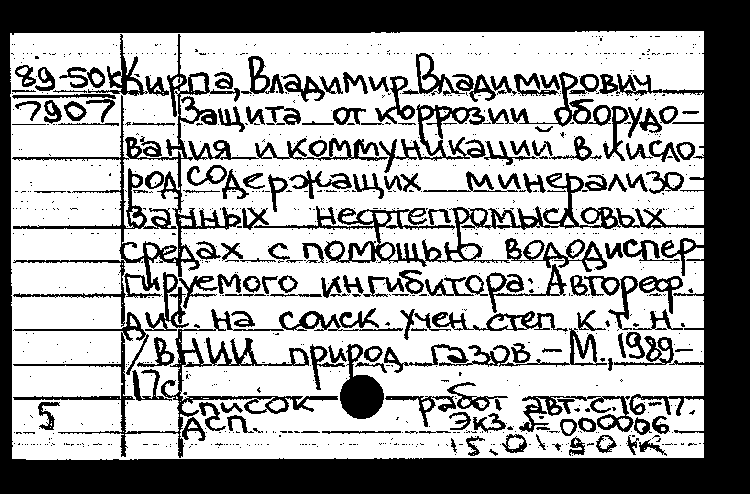 89-50к Кирпа, Владимир Владимирович
7907 Защита от коррозии оборудо-
вания и коммуникаций в кисло-
родсодержащих минерализо-
ванных нефтепромысловых
средах с помощью вододиспер-
гируемого ингибитора: Автореф.
дис. на соиск. учен. степ к.т.н.
/ ВНИИ природ газов. – М., 1989.–
17с.
5 Список работ авт. с. 16-17.
Дсп. Экз. № 000006
15.01.90